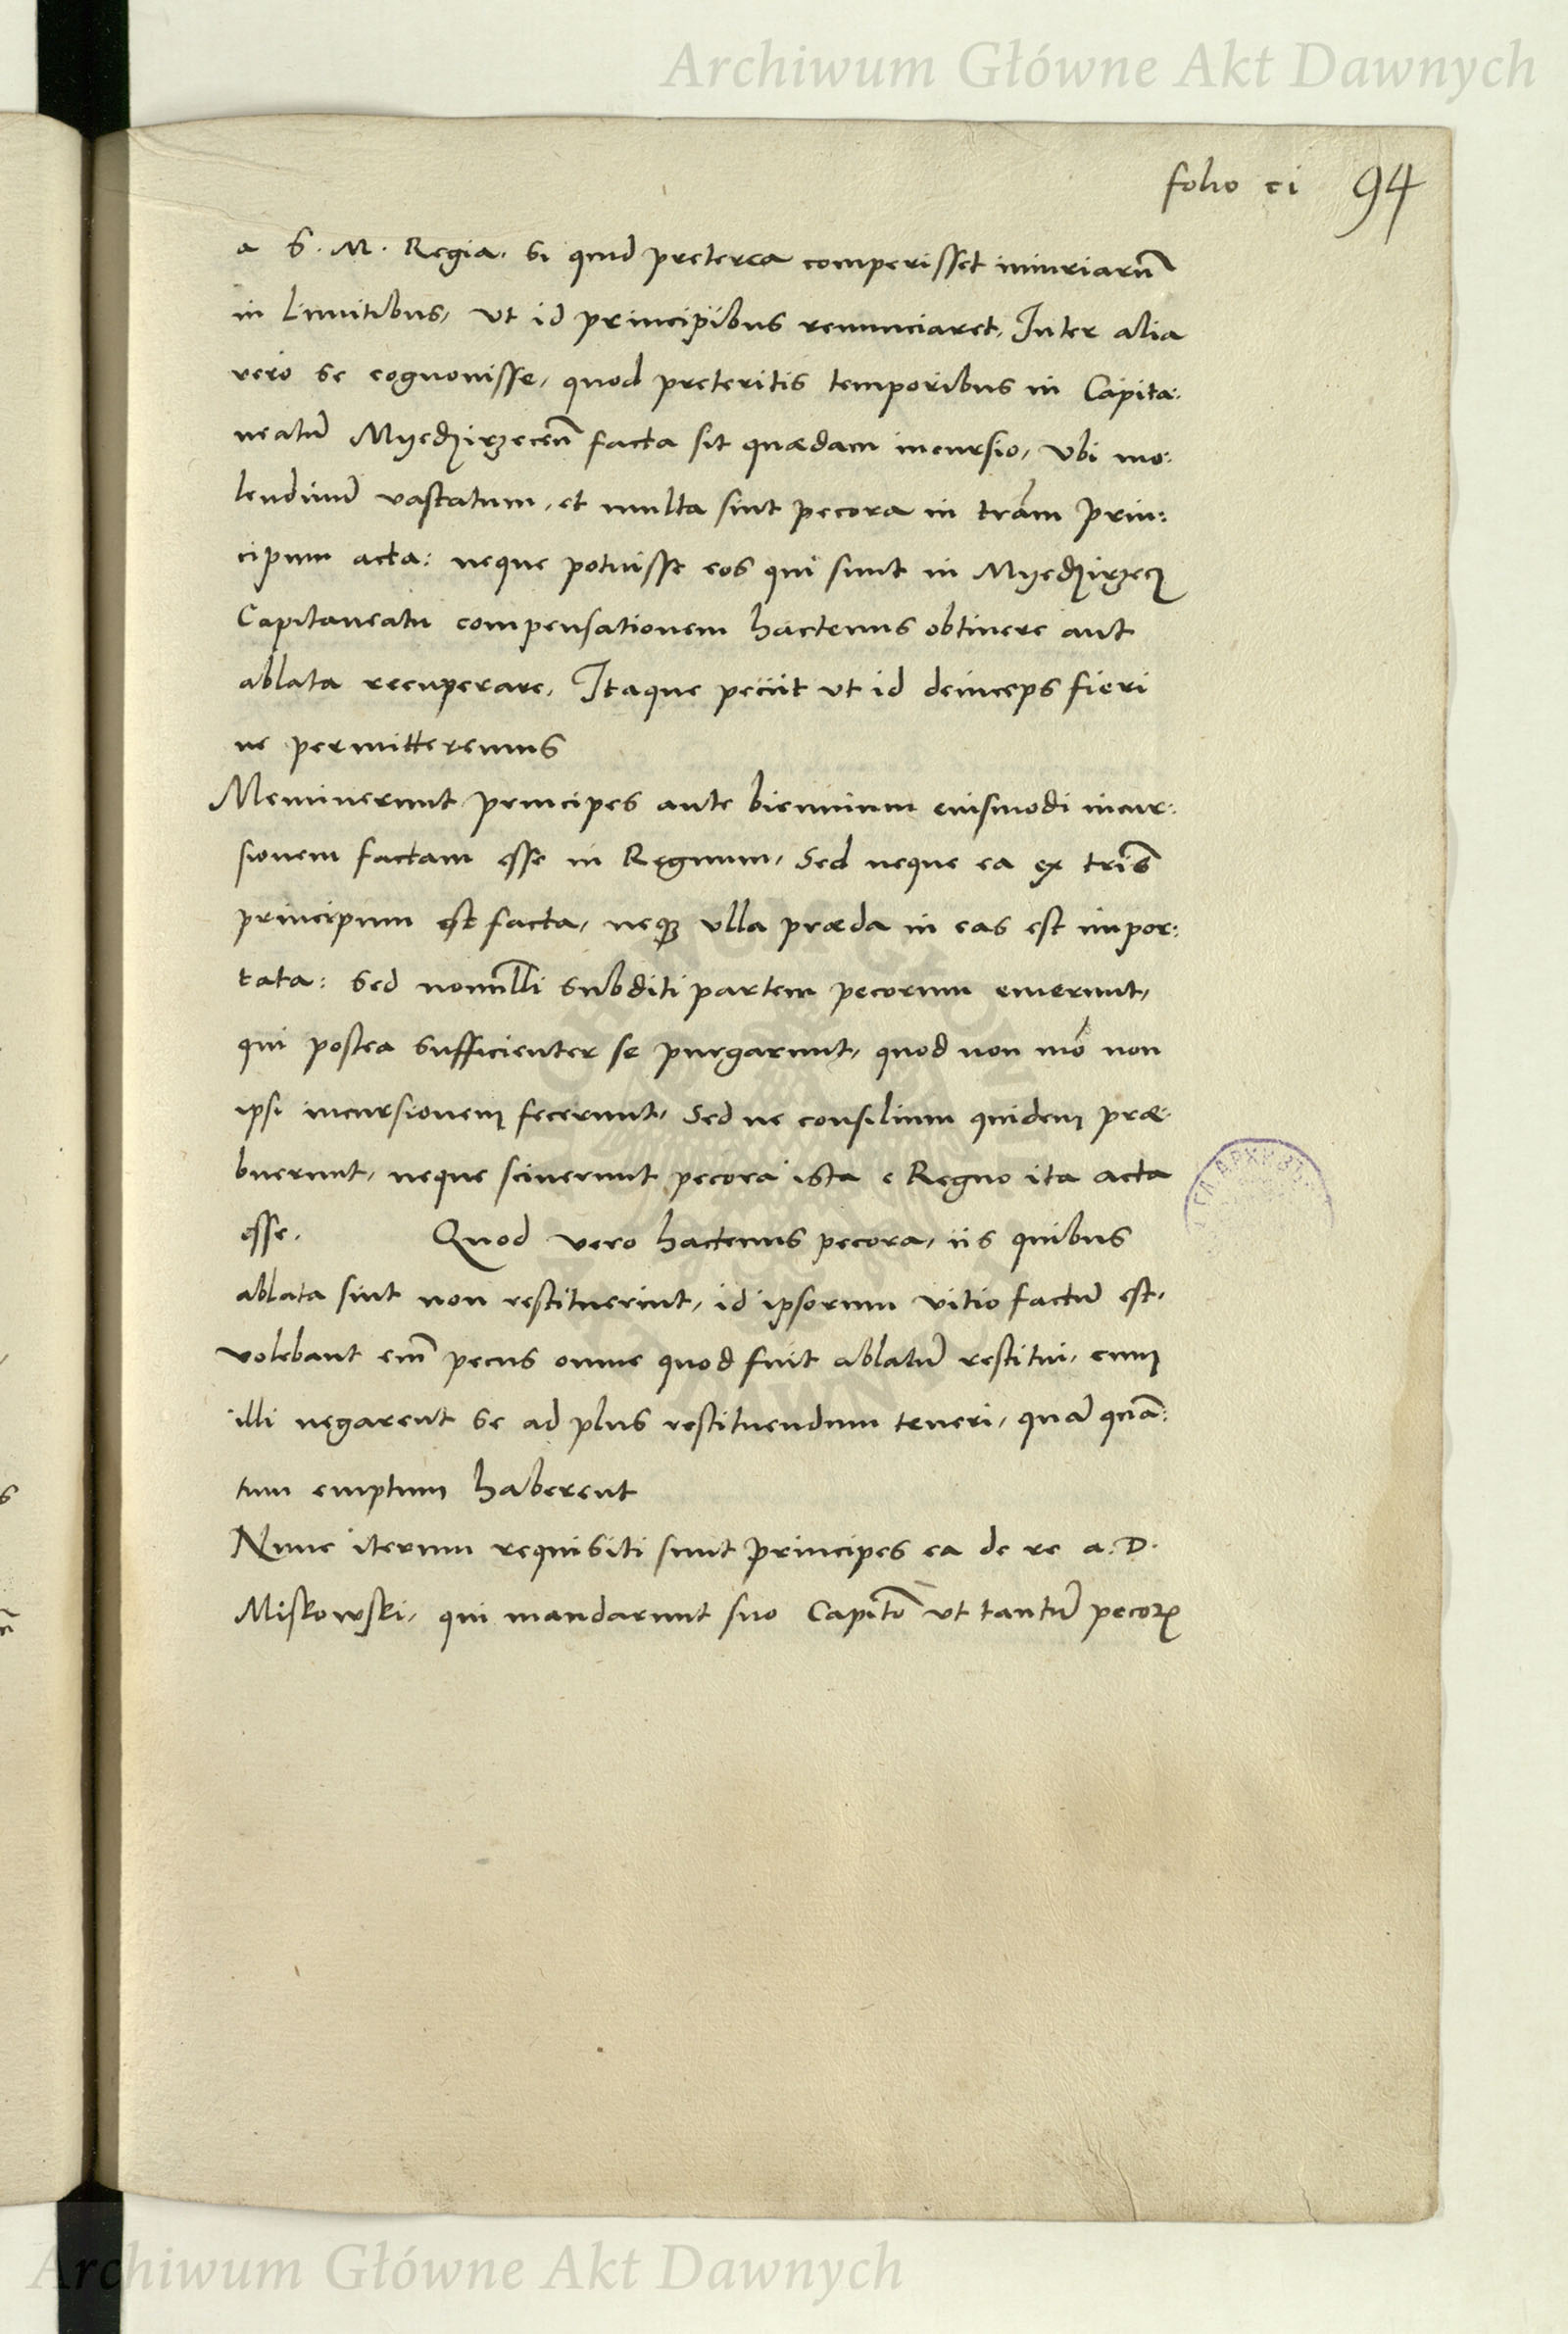 Archiwum Główne Akt Dawnych
folio ci 94
a S. M. Regia. Si quid preterea comperisset iniuriarū
in Limitibus, ut id principibus renunciaret. Inter alia
vero se cognouisse, quod preteritis temporibus in Capita:
neatū Myedzirzecen̄ facta sit quædam incursio, Vbi mo:
lendinū vastatum, et multa sint pecora in trām Prin:
cipum acta: neque potuisse eos qui sunt in Myedzirzecz
Capitaneatu compensationem hactenus obtinere aut
ablata recuperare. Itaque peciit ut id deinceps fieri
ne permitteremus
Meminerunt principes ante biennium eiusmodi incur:
sionem factam esse in Regnum, Sed neque ea ex tris̄
principum est facta, neqȝ ulla præda in eas est impor:
tata: Sed nonnūlli subditi partem pecorum emerunt,
qui postea sufficienter se purgarunt, quod non mō non
ipsi incursionem fecerunt, Sed ne consilium quidem præ:
buerunt, neque sciuerunt pecora ista e Regno ita acta
esse. Quod vero hactenus pecora, iis quibus
ablata sint non restituerint, id ipsorum vitio factū est,
volebant em̄ pecus omne quod fuit ablatū restitui, cum
illi negarent se ad plus restituendum teneri, quā quā:
tum emptum haberent
Nunc iterum requisiti sunt principes ea de re a. D.
Miskowski, qui mandarunt suo Capitō ut tantū pecorꝝ
Archiwum Główne Akt Dawnych